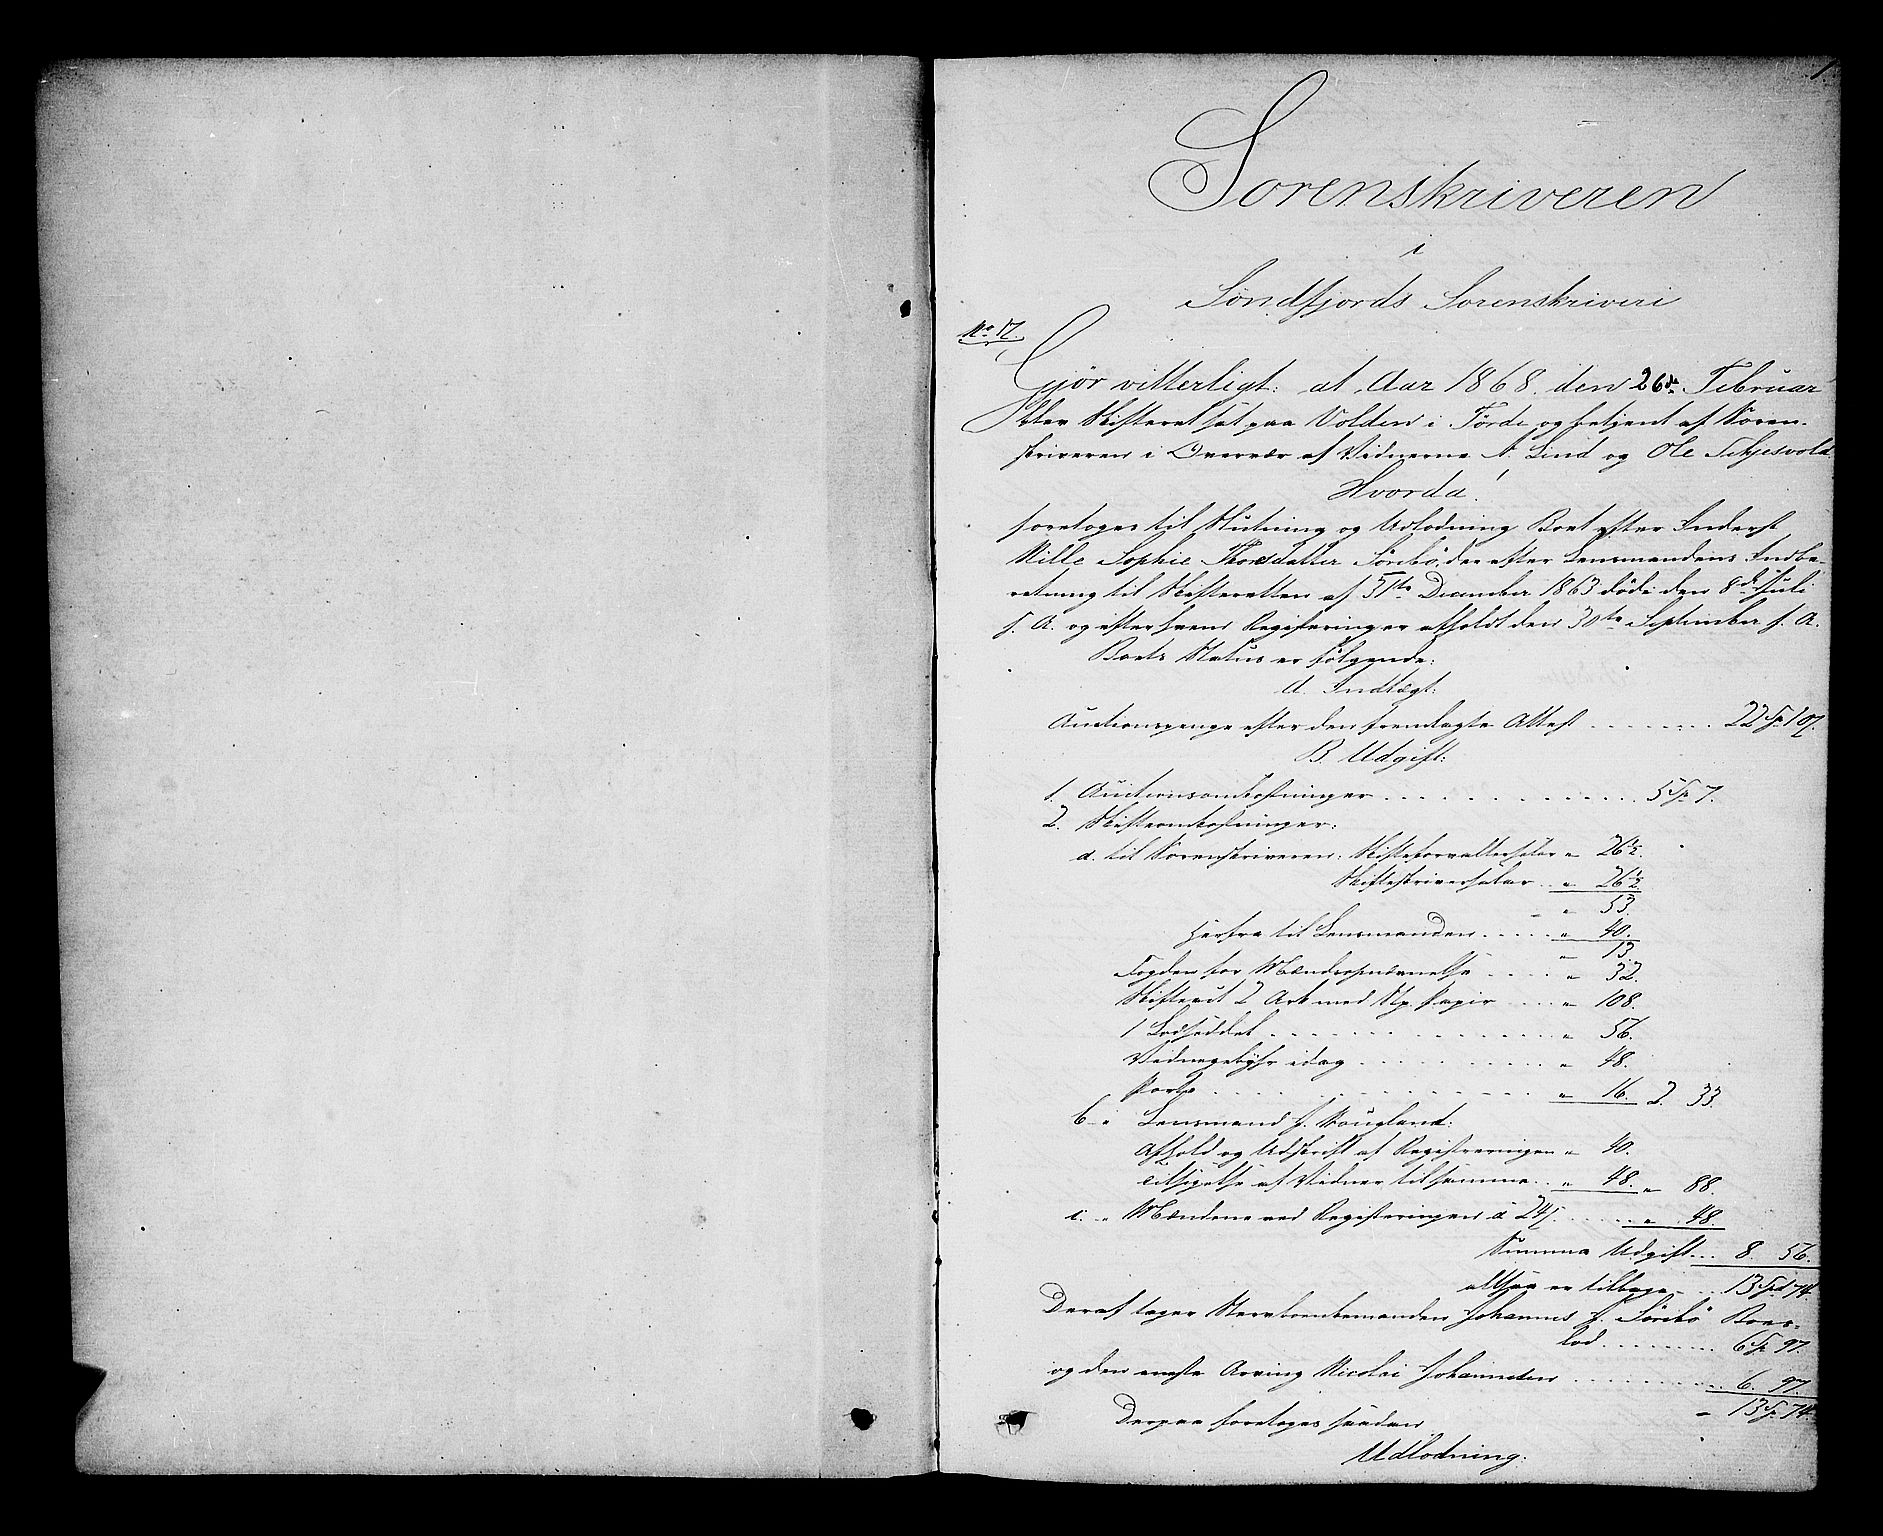 1.
Sorenskriveren
i
Søndfjords Sorenskriveri
No 17.
Gjør vitterligt: at Aar 1868 den 26de Februar
blev Skifteret sat paa Volden i Førde og betjent af Soren-
skriveren i Overvær af Vidnerne A. Lind og Ole
Hvorda!
foretoges til Slutning og Udlodning Boet efter Inderst
Wille Sophie Thorsdatter Sörebö, der efter Lensmandens Indbe-
retning til Skifteretten af 5te December 1863 döde den 8de Juli
s. A. og efter hvem Registrering er afholdt den 30te September s. A.
Boets Status er følgende:
A. Indtægt:
Auctionspenge efter den fremlagte Attest . . . . . . 22 Sp 10 /.
B. Udgift:
1. Auctionsomkostninger . . . . . . . . . . 5 Sp 7.
2. Skifteomkostninger:
a. til Sorenskriveren: Skifteforvaltersalar " 26½.
Skifteskriversalar . . " 26½
" 53.
Herfra til Lensmanden . . . . . " 40.
" 13.
Fogden for Mændsopnævnelse . . . . " 32.
Skifteact 2 Ark med St. Papir . . . . " 108.
1 Lodseddel . . . . . . . . . . " 56.
Vidnegebyhr idag . . . . . . . . " 48.
Porto . . . . . . . . . . . . " 16. 2. 33.
b. " Lensmand J. Sougland:
Afhold og Udskrift af Registreringen " 40.
Tilsigelse af Vidner til samme . . " 48. " 88.
c. " Mændene ved Registeringen à 24 /. . . . . " 48.
Summa Udgift . . . 8. 56.
altsaa er tilbage . . . 13 Spd 74.
Deraf tager Stervboenkemanden Johannes J. Sörebö Boes-
lod . . . . . . . . . 6 Sp 97.
og den eneste Arving Nicolai Johannesen . . . . . . . . 6. 97.
" 13 Sp 74.
Derpaa foretoges saadan
Udlodning: